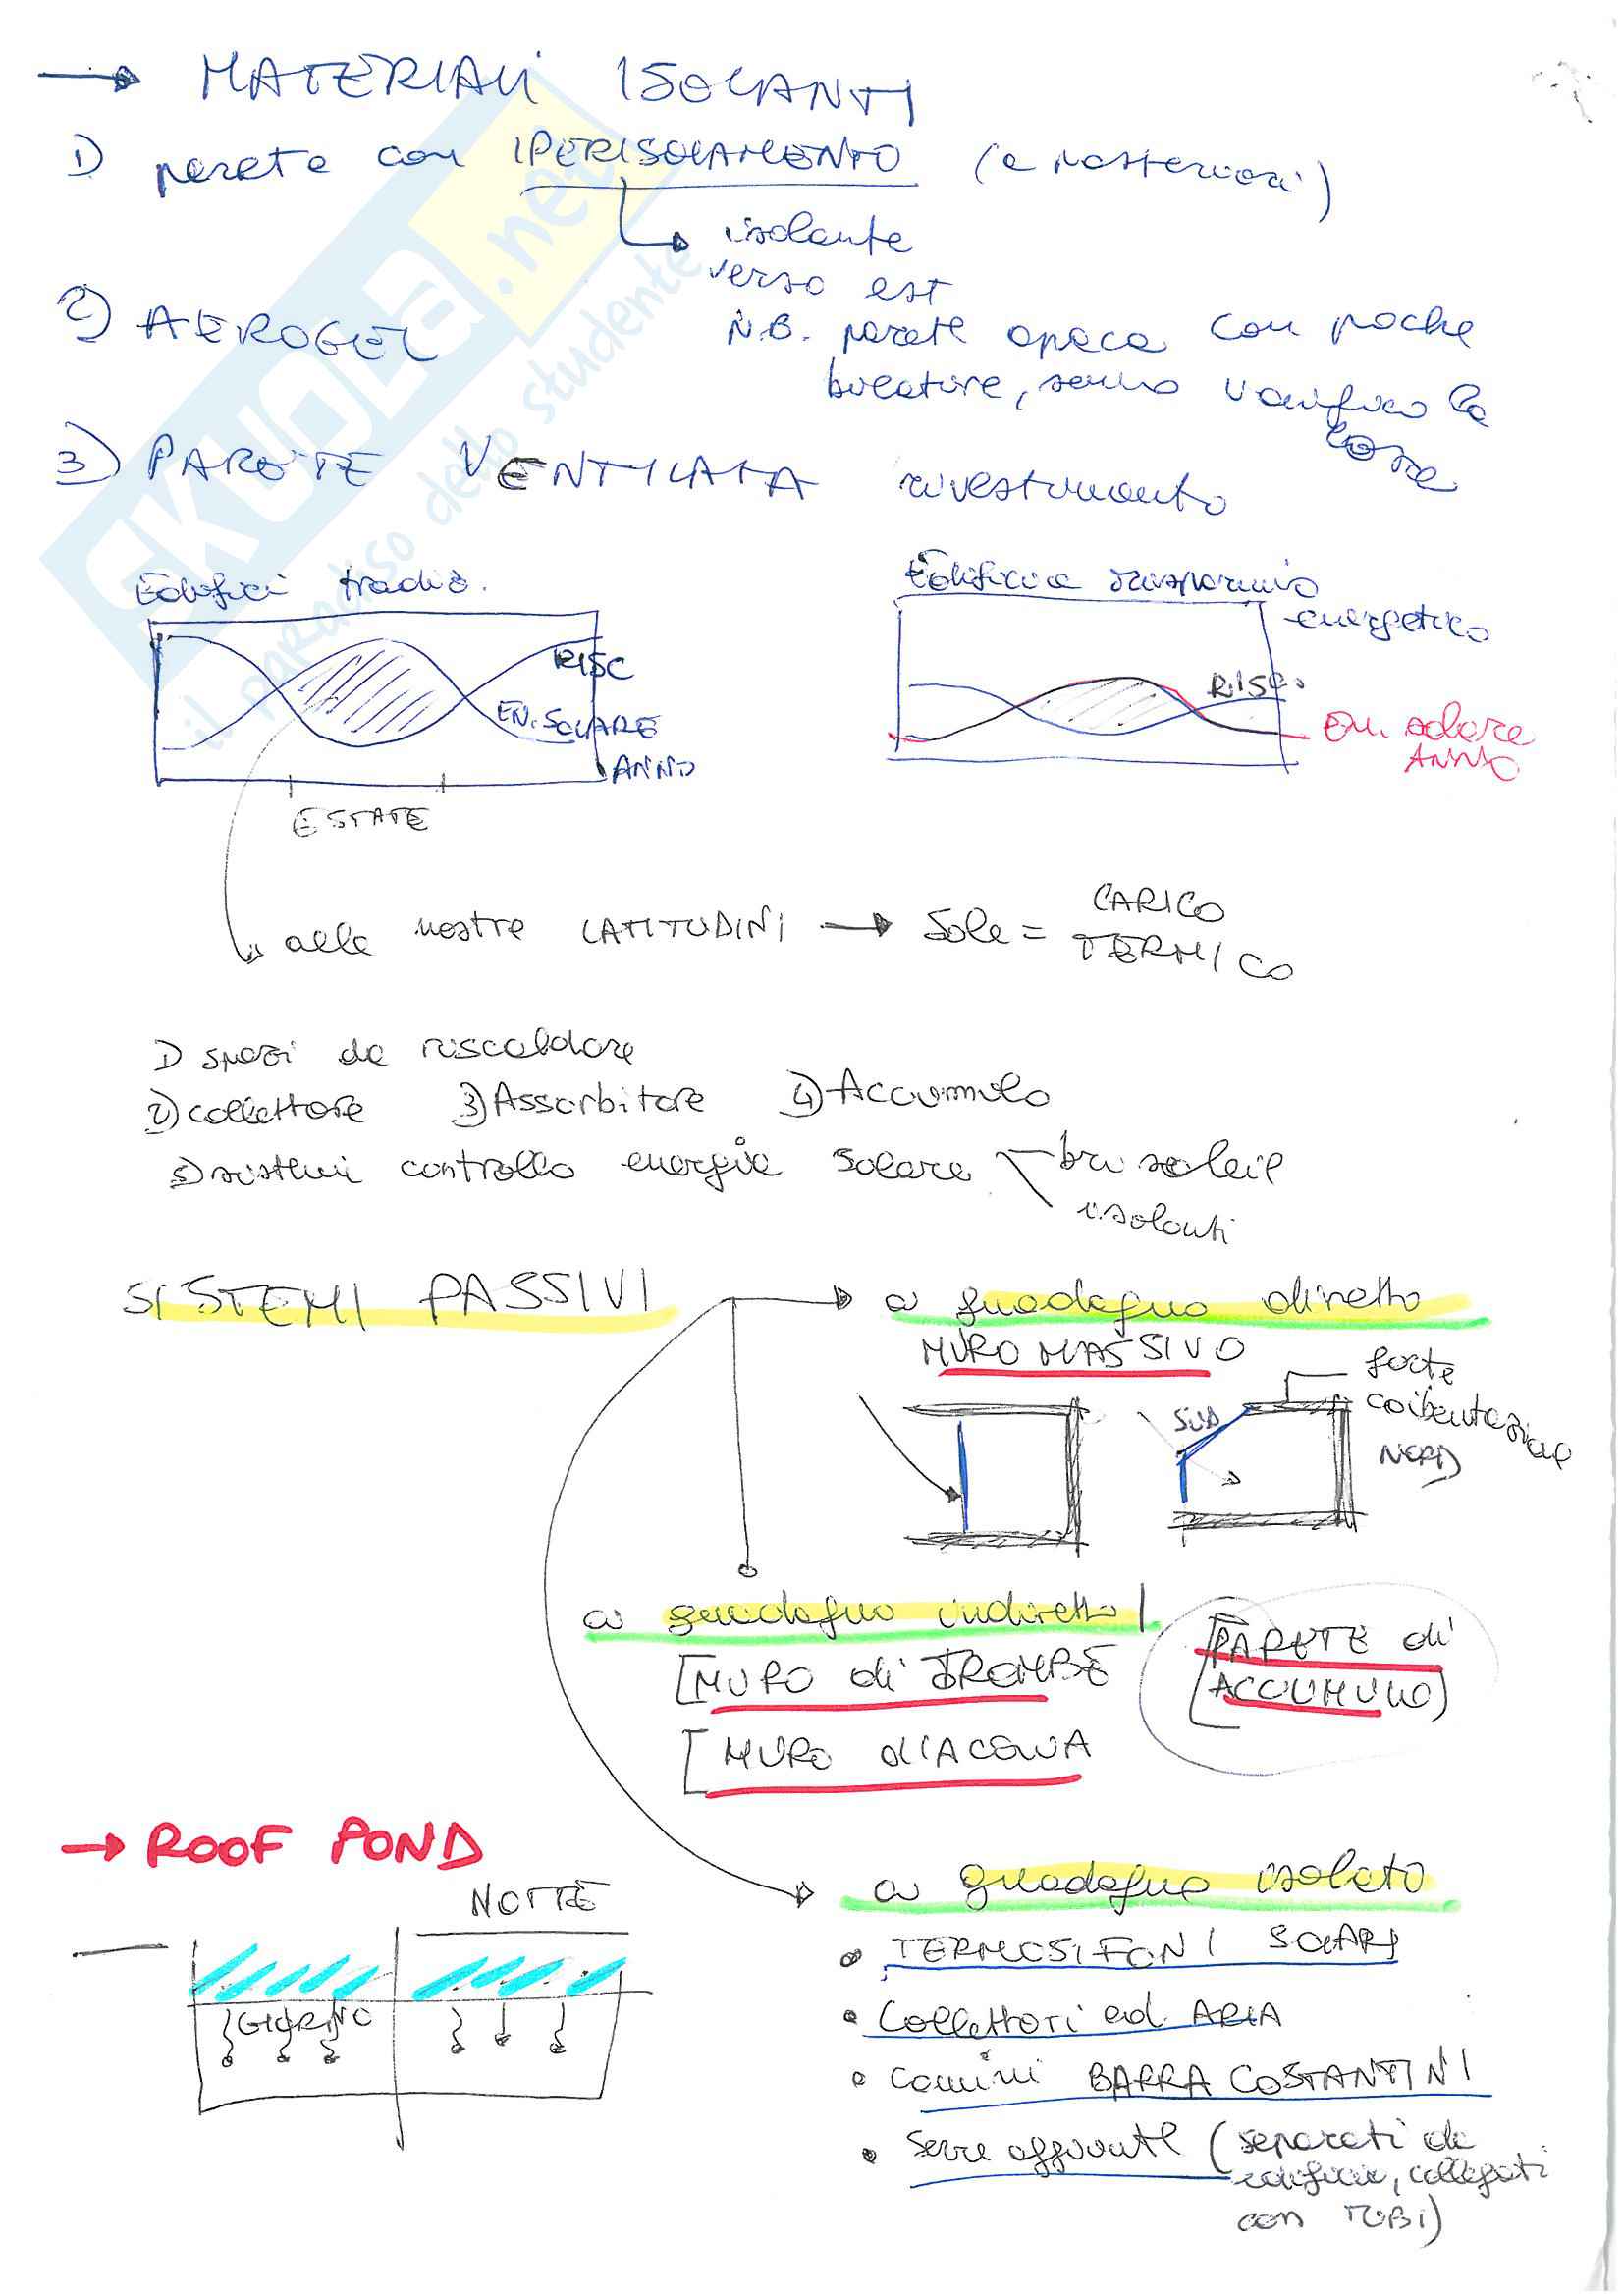 → MATERIALI ISOLANTI
1) parete con IPERISOLAMENTO (a posteriori)
isolante
verso est
2) AEROGEL
N.B. parete opaca con poche
bucature, senno vanifico la
cosa
3) PARETE VENTILATA rivestimento
Edifici tradiz.
RISC
EN. SOLARE
ANNO
ESTATE
Edificio a risparmio
energetico
RISC.
En. solare
ANNO
alle nostre LATITUDINI → Sole = CARICO
TERMICO
1) spazi da riscaldare
2) collettore 3) Assorbitore 4) Accumulo
5) sistemi controllo energia solare
brisoleil
isolanti
SISTEMI PASSIVI
a guadagno diretto
MURO MASSIVO
forte
coibentazione
NORD
SUD
a guadagno indiretto
[MURO di TROMBE
[MURO d'ACQUA
[PARETE di
ACCUMULO]
→ ROOF POND
NOTTE
GIORNO
a guadagno isolato
• TERMOSIFONI SOLARI
• Collettori ad ARIA
• Camini BARRA COSTANTINI
• Serre aggiunte (separati da
edificio, collegati
con TUBI)
SKUOLA.net
il paradiso dello studente